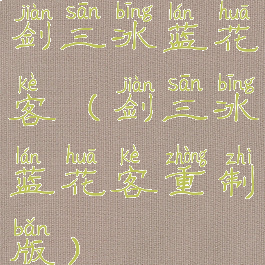 jiàn sān bīng lán huā
剑三冰蓝花
kè jiàn sān bīng
客（剑三冰
lán huā kè zhòng zhì
蓝花客重制
bǎn
版）